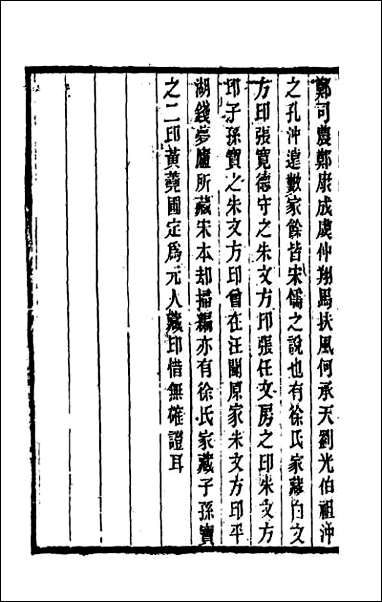 鄭司農鄭康成虞仲翔馬扶風何承天劉光伯祖沖
之孔沖遠數家餘皆宋儒之說也有徐氏家藏白文
方印張寛德守之朱文方印張任文房之印朱文方
印子孫寶之朱文方印曾在汪閬原家朱文方印平
湖錢夢廬所藏宋本却掃編亦有徐氏家藏子孫寶
之二印黃蕘圃定爲元人藏印惜無確證耳